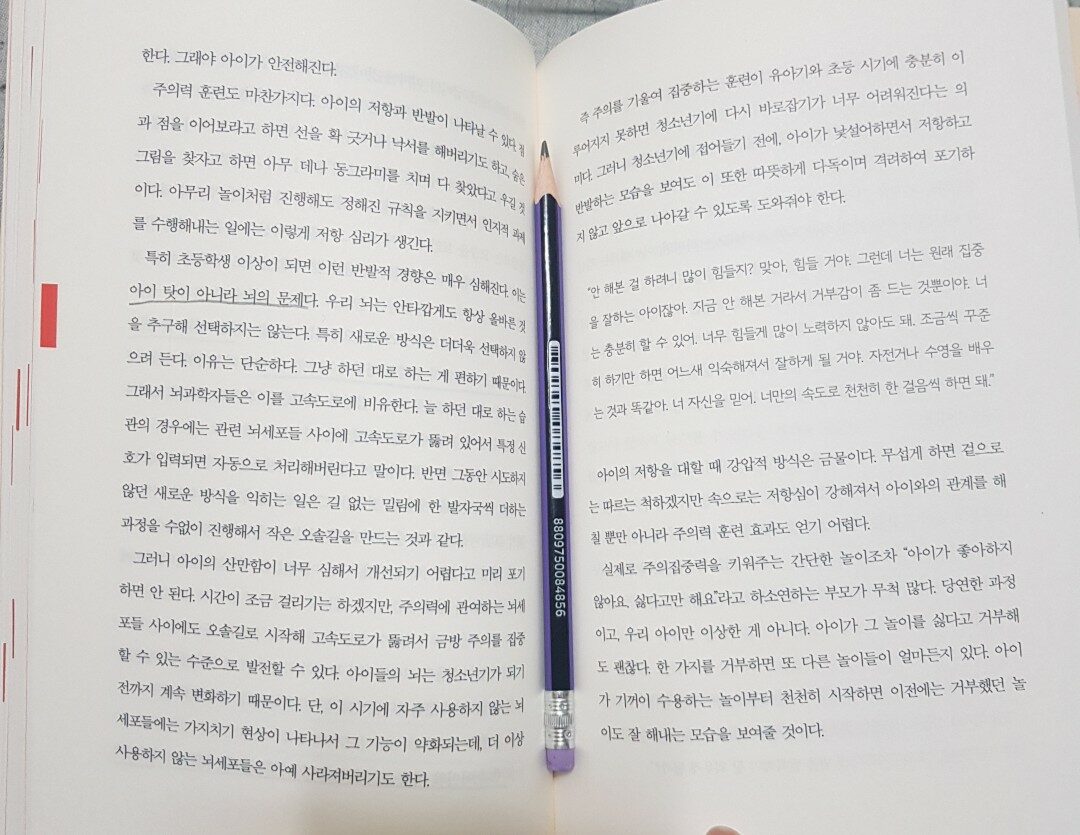 한다. 그래야 아이가 안전해진다.
주의력 훈련도 마찬가지다. 아이의 저항과 반발이 나타날 수 있다. 점
과 점을 이어보라고 하면 선을 확 긋거나 낙서를 해버리기도 하고, 숨은
그림을 찾자고 하면 아무 데나 동그라미를 치며 다 찾았다고 우길 것
이다. 아무리 놀이처럼 진행해도 정해진 규칙을 지키면서 인지적 과제
를 수행해내는 일에는 이렇게 저항 심리가 생긴다.
특히 초등학생 이상이 되면 이런 반발적 경향은 매우 심해진다. 이는
아이 탓이 아니라 뇌의 문제다. 우리 뇌는 안타깝게도 항상 올바른 것
을 추구해 선택하지는 않는다. 특히 새로운 방식은 더더욱 선택하지 않
으려 든다. 이유는 단순하다. 그냥 하던 대로 하는 게 편하기 때문이다.
그래서 뇌과학자들은 이를 고속도로에 비유한다. 늘 하던 대로 하는 습
관의 경우에는 관련 뇌세포들 사이에 고속도로가 뚫려 있어서 특정 신
호가 입력되면 자동으로 처리해버린다고 말이다. 반면 그동안 시도하지
않던 새로운 방식을 익히는 일은 길 없는 밀림에 한 발자국씩 더하는
과정을 수없이 진행해서 작은 오솔길을 만드는 것과 같다.
그러니 아이의 산만함이 너무 심해서 개선되기 어렵다고 미리 포기
하면 안 된다. 시간이 조금 걸리기는 하겠지만, 주의력에 관여하는 뇌세
포들 사이에도 오솔길로 시작해 고속도로가 뚫려서 금방 주의를 집중
할 수 있는 수준으로 발전할 수 있다. 아이들의 뇌는 청소년기가 되기
전까지 계속 변화하기 때문이다. 단, 이 시기에 자주 사용하지 않는 뇌
세포들에는 가지치기 현상이 나타나서 그 기능이 약화되는데, 더 이상
사용하지 않는 뇌세포들은 아예 사라져버리기도 한다.
8809750084856
즉 주의를 기울여 집중하는 훈련이 유아기와 초등 시기에 충분히 이
루어지지 못하면 청소년기에 다시 바로잡기가 너무 어려워진다는 의
미다. 그러니 청소년기에 접어들기 전에, 아이가 낯설어하면서 저항하고
반발하는 모습을 보여도 이 또한 따뜻하게 다독이며 격려하여 포기하
지 않고 앞으로 나아갈 수 있도록 도와줘야 한다.
“안 해본 걸 하려니 많이 힘들지? 맞아, 힘들 거야. 그런데 너는 원래 집중
을 잘하는 아이잖아. 지금 안 해본 거라서 거부감이 좀 드는 것뿐이야. 너
는 충분히 할 수 있어. 너무 힘들게 많이 노력하지 않아도 돼. 조금씩 꾸준
히 하기만 하면 어느새 익숙해져서 잘하게 될 거야. 자전거나 수영을 배우
는 것과 똑같아. 너 자신을 믿어. 너만의 속도로 천천히 한 걸음씩 하면 돼.”
아이의 저항을 대할 때 강압적 방식은 금물이다. 무섭게 하면 겉으로
는 따르는 척하겠지만 속으로는 저항심이 강해져서 아이와의 관계를 해
칠 뿐만 아니라 주의력 훈련 효과도 얻기 어렵다.
실제로 주의집중력을 키워주는 간단한 놀이조차 “아이가 좋아하지
않아요, 싫다고만 해요”라고 하소연하는 부모가 무척 많다. 당연한 과정
이고, 우리 아이만 이상한 게 아니다. 아이가 그 놀이를 싫다고 거부해
도 괜찮다. 한 가지를 거부하면 또 다른 놀이들이 얼마든지 있다. 아이
가 기꺼이 수용하는 놀이부터 천천히 시작하면 이전에는 거부했던 놀
이도 잘 해내는 모습을 보여줄 것이다.